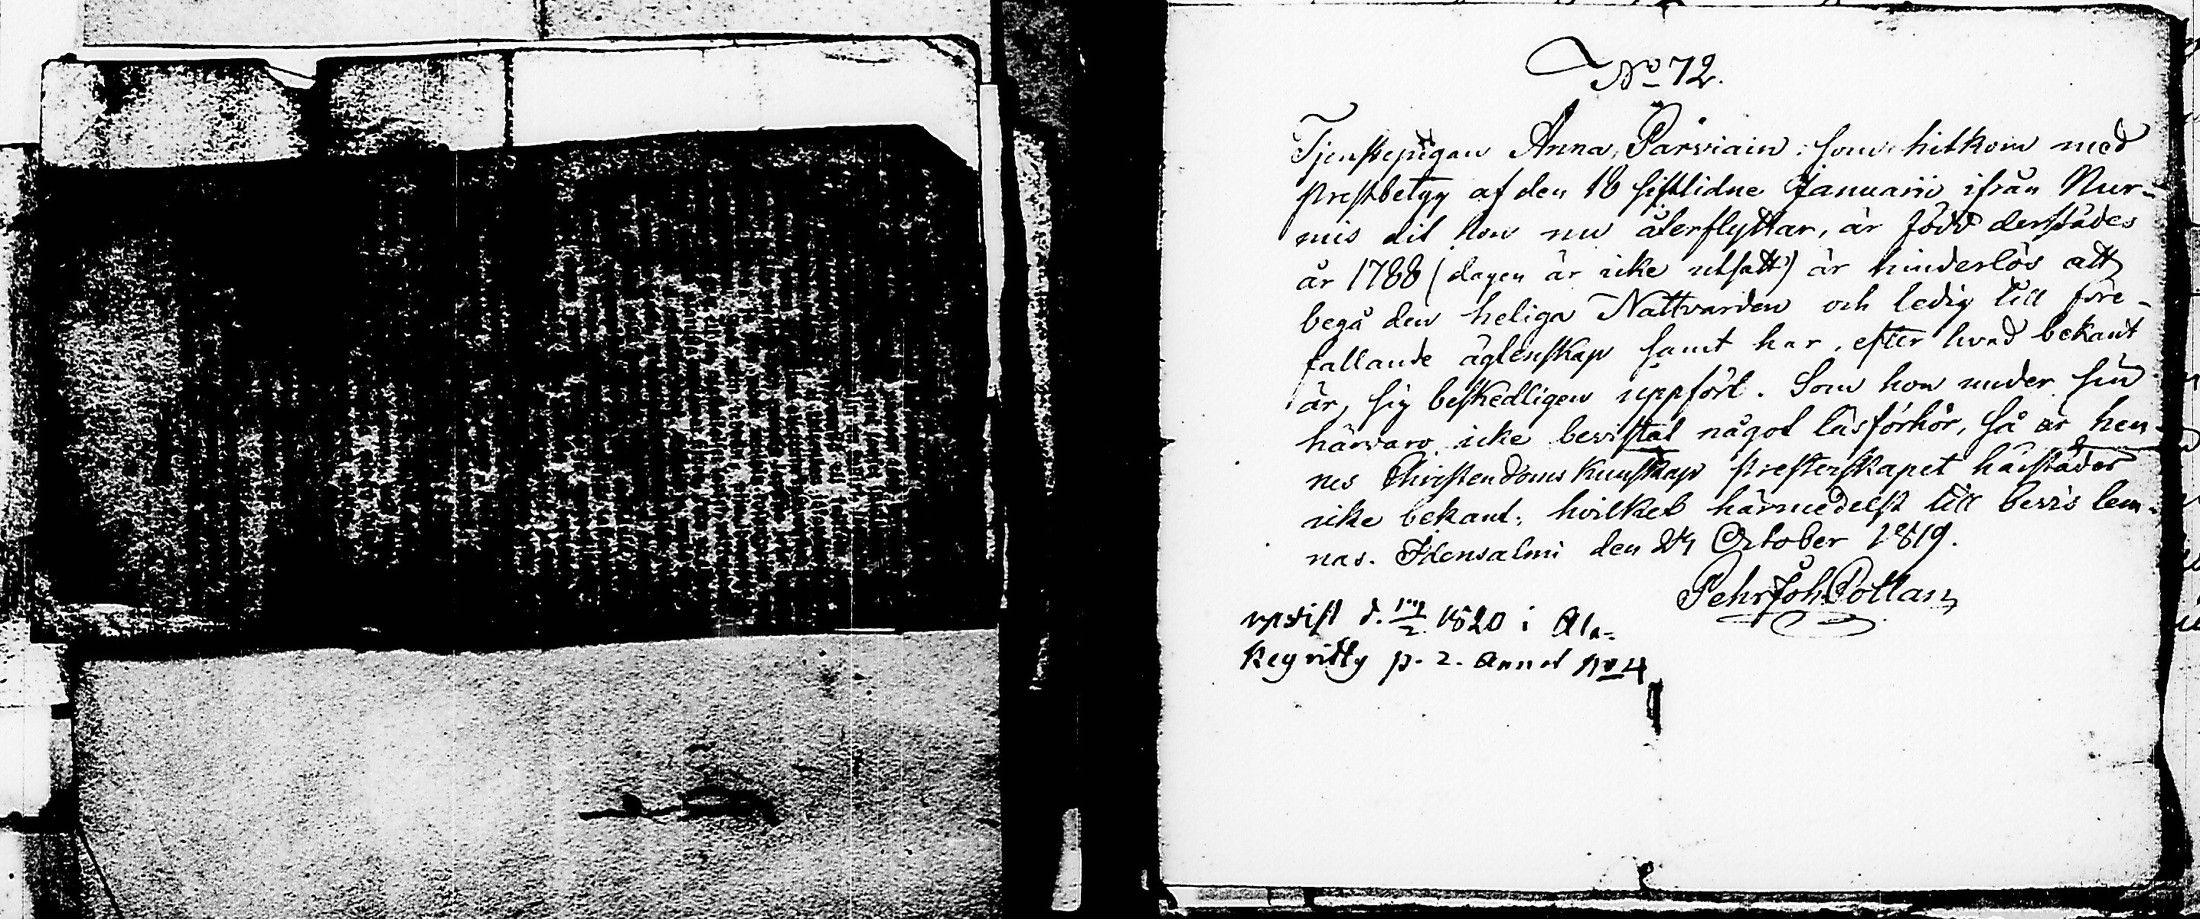 No 72.
Tjenstepigan Anna Parviain som hitkom med
prestbetyg af den 18 sistlidne Januarii ifrån Nur-
mis dit hon nu återflyttar, är född derstädes
år 1788 (dagen är icke utsatt) är hinderlös att
begå den heliga Nattvarden och ledig till före-
fallande ägtenskap samt har, efter hvad bekant
är, sig beskedligen uppfört. Som hon under sin
härvaro icke bevistat något läsförhör, så är hen-
nes Christendoms kunskap presterskapet härstädes
icke bekant, hvilket härmedelst till bevis lem-
nas. Idensalmi den 24 October 1819.
Pehr Joh. Pollan
upvist d. 1820 i Ala-
p. 2. annot No 4